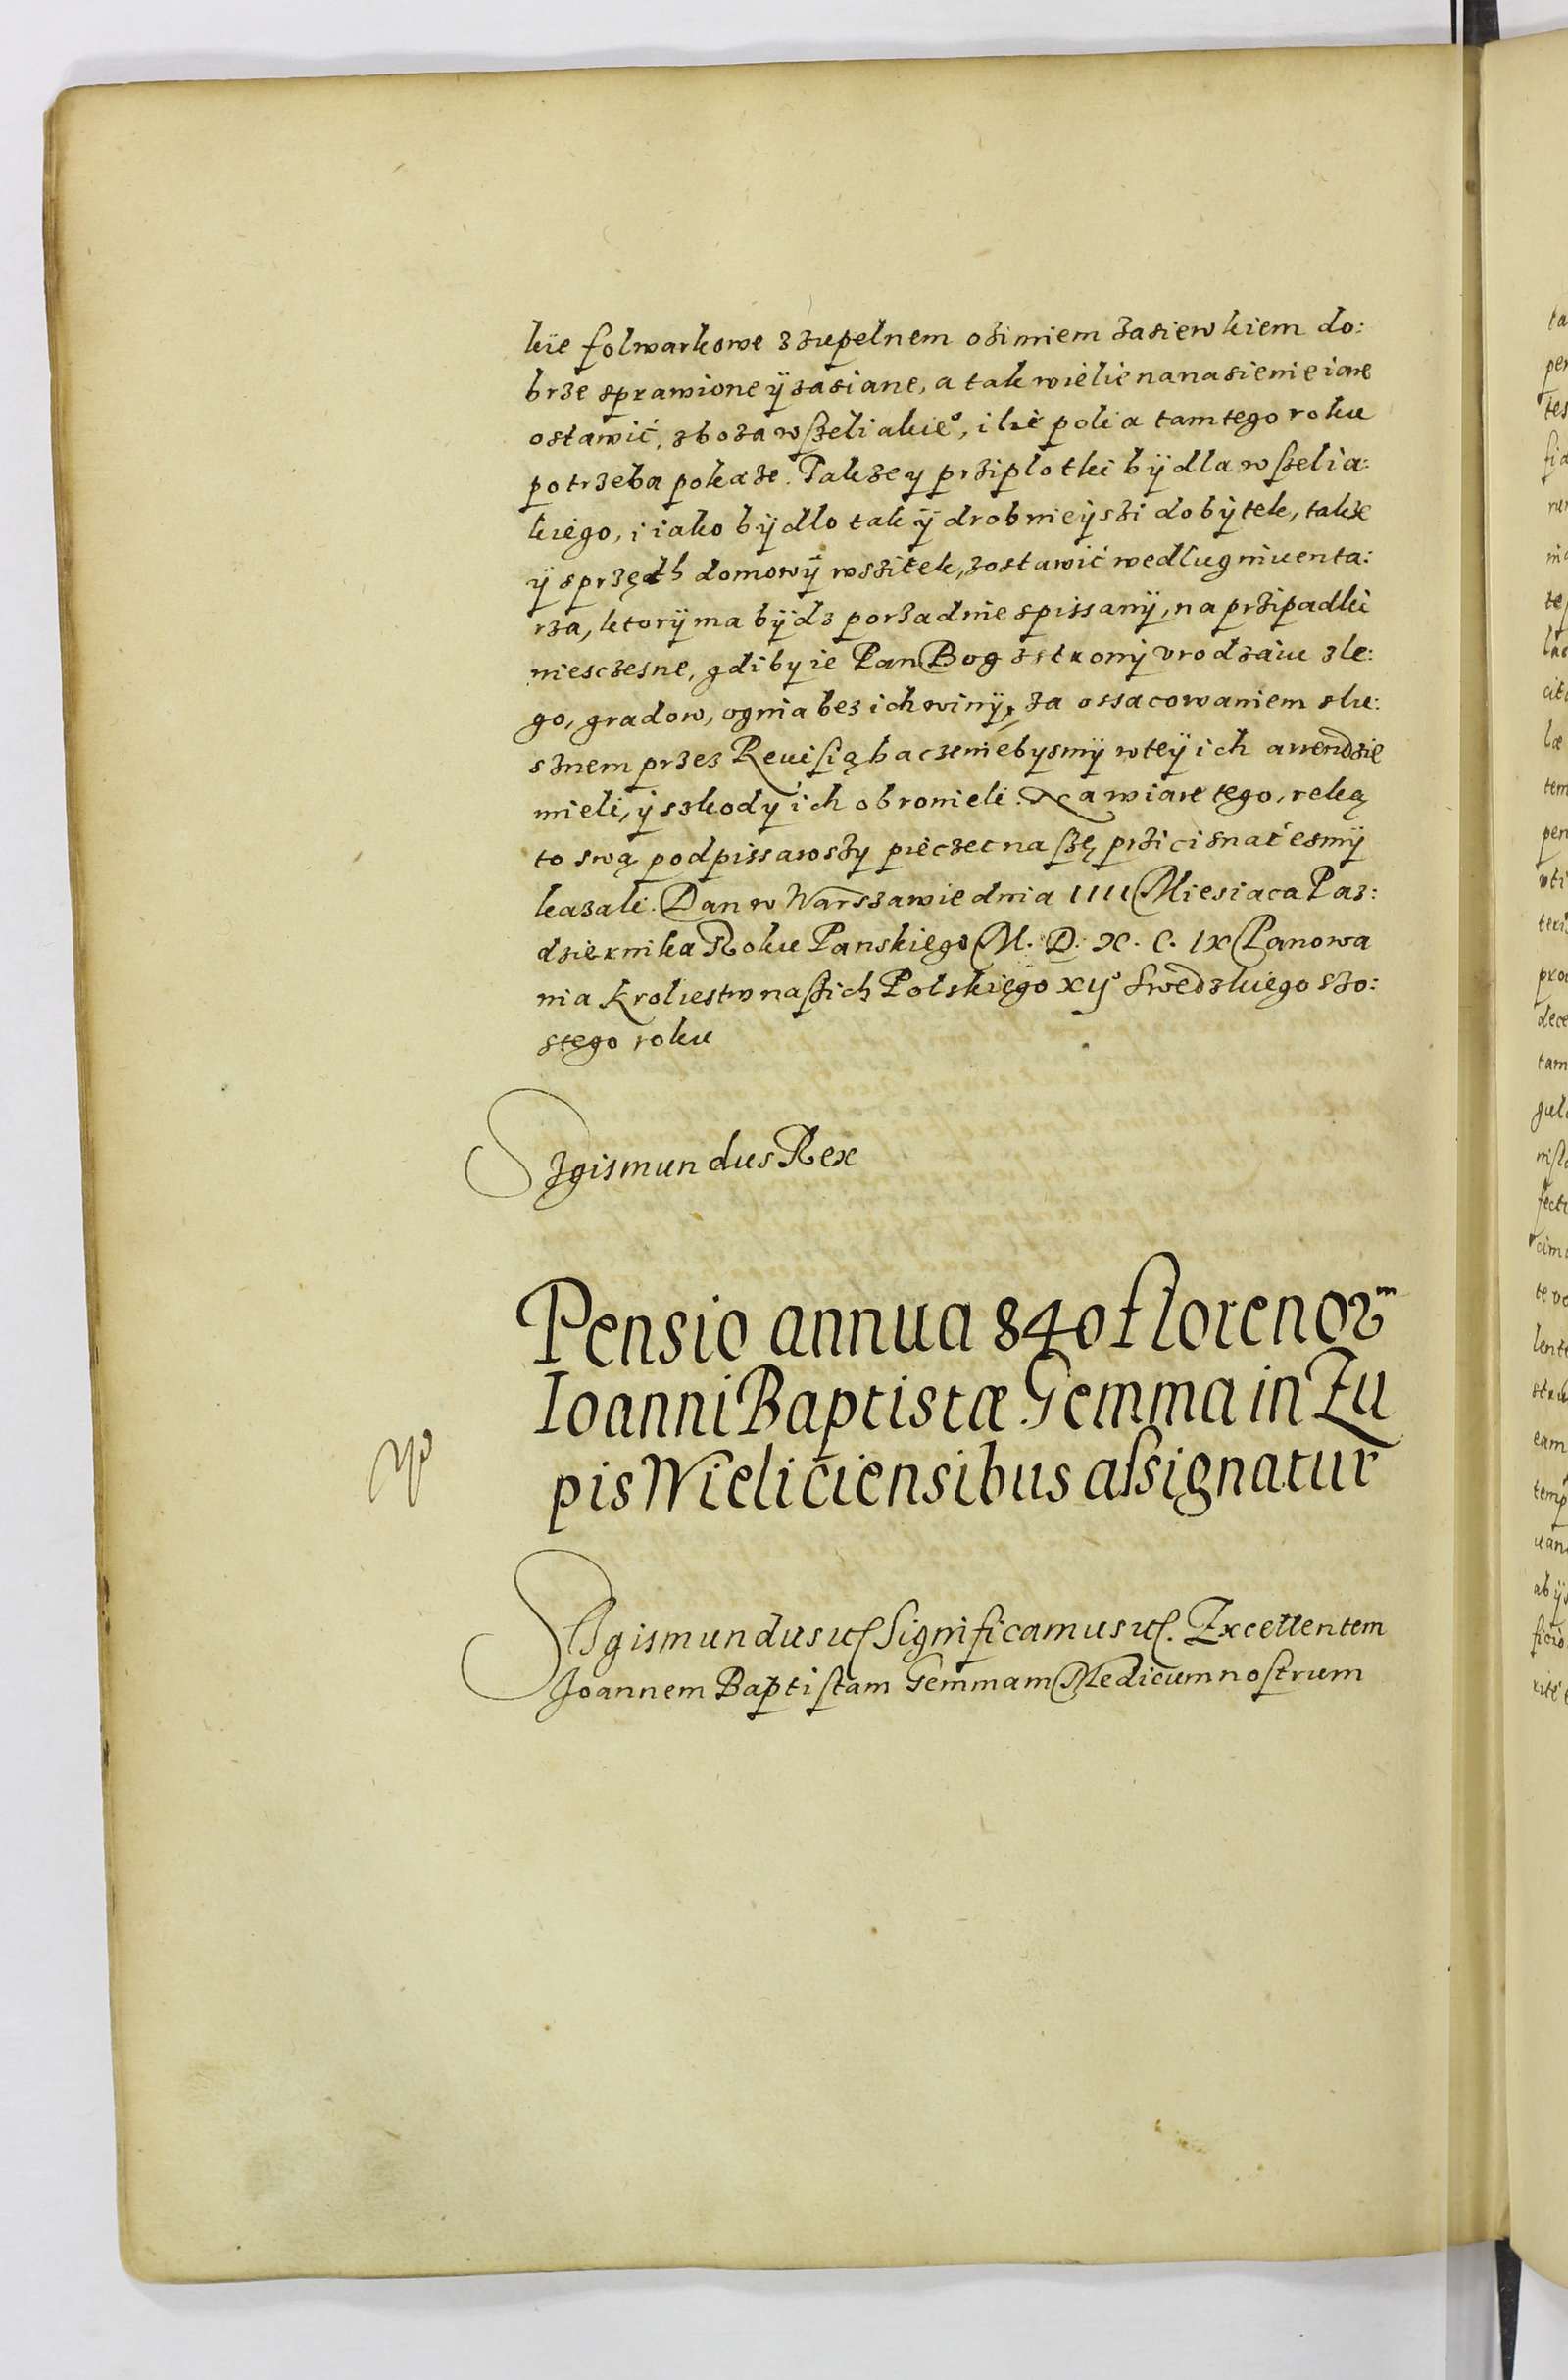 kie folwarkowe z zupelnem ozimiem zasiewkiem do:
brze sprawione ÿ zasiane, a tak wielie na nasienie iare
ostawić, zboza wszeliakie°, ilie polia tamtego roku
potrzeba pokaze. Takze y prziplotki bÿdla wszelia:
kiego, i iako bÿdlo tak ÿ drobnieÿszi dobÿtek, takze
ÿ sprzęth domowÿ wszitek, zostawić wedlug inuenta:
rza, ktorÿ ma bÿdz porzadnie spissanÿ, na przipadki
niesczesne, gdiby ie Pan Bog z stronÿ vrodzaiu zle:
go, gradow, ognia bez ich winÿ, za ossacowaniem slu:
sznem przez Reuisią baczeniebysmÿ w teÿ ich arendzie
mieli, ÿ szkody ich obronieli. Na wiare tego, reką
to swą podpissawszy pieczec naszę przicisnać esmÿ
kazali. Dan w Warszawie dnia IIII Miesiaca Paz:
dziernika Roku Panskiego M. D. X. C. IX Panowa
nia Kroliestw naszich Polskiego xij° Swedzkiego szo:
stego roku
Sigismundus Rex
Pensio annua 840 florenoꝝ
Ioanni Baptistæ Gemma in Zu
pis Wieliciensibus assignatur
Sigismundus etc Significamus etc. Excellentem
Joannem Baptistam Gemmam Medicum nostrum